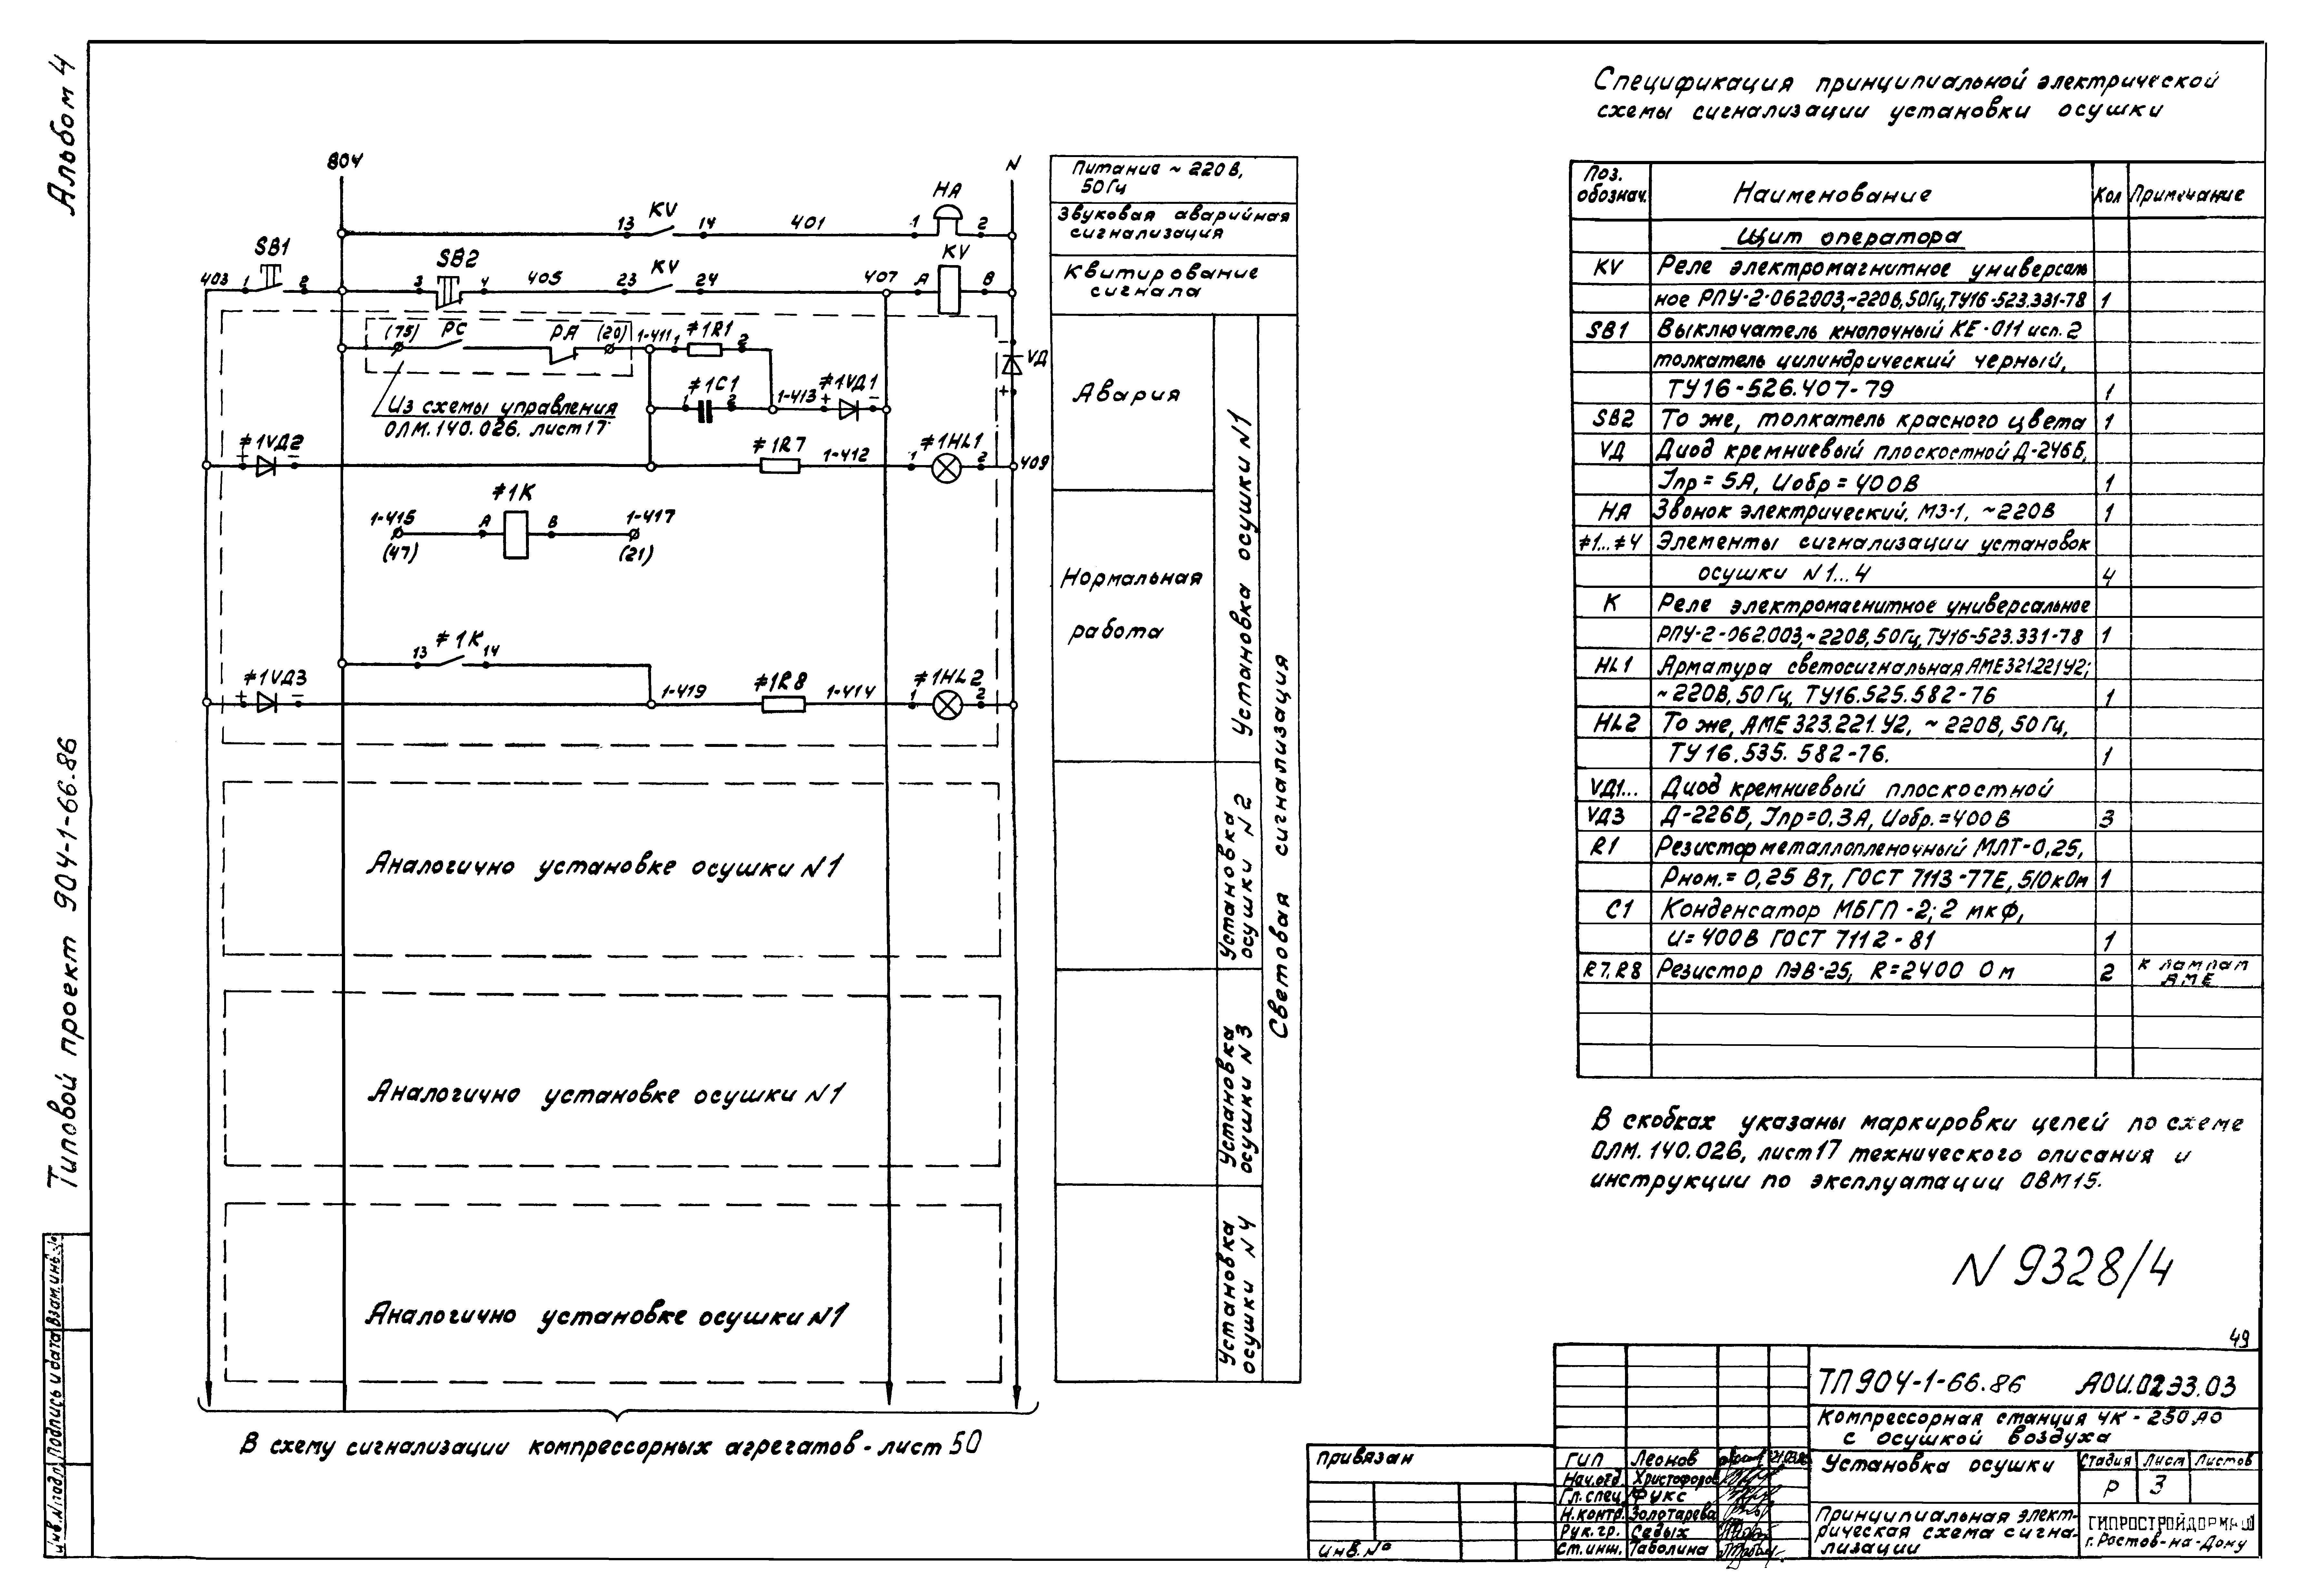 Альбом 4
Типовой проект 904-1-66.86
Взам.инв.№
Подпись и дата
Инв.№подл.
804
N
13 KV 14 401 1 HA 2
SB1
403 1 2
SB2
3 4 405 23 KV 24 407 A KV B
(75) РС РА (20) 1-411 1 ≠1R1 2
Из схемы управления
ОЛМ.140.026. лист17
1 ≠1C1 2 1-413 + ≠1VД1 -
- VД +
≠1VД2
+ - ≠1R7 1-412 1 ≠1HL1 2 409
≠1K
1-415 A B 1-417
(47) (21)
≠1K
13 14
≠1VД3
+ - 1-419 ≠1R8 1-414 1 ≠1HL2 2
Аналогично установке осушки N1
Аналогично установке осушки N1
Аналогично установке осушки N1
В схему сигнализации компрессорных агрегатов - лист 50
Питание ~ 220В,
50Гц
Звуковая аварийная
сигнализация
Квитирование
сигнала
Авария
Нормальная
работа
Установка осушки N1
Установка
осушки N 2
Установка
осушки N 3
Установка
осушки N 4
Световая сигнализация
Спецификация принципиальной электрической
схемы сигнализации установки осушки
Поз.
обознач.
Наименование
Кол
Примечание
Щит оператора
KV Реле электромагнитное универсаль
ное РПУ-2-062003,~220В,50Гц,ТУ16-523.331-78 1
SB1 Выключатель кнопочный КЕ-011 исп. 2
толкатель цилиндрический черный,
ТУ16-526.407-79 1
SB2 То же, толкатель красного цвета 1
VД Диод кремниевый плоскостной Д-246Б,
Iпр = 5А, Uобр = 400В 1
HA Звонок электрический, МЗ-1, ~220В 1
≠1...≠4 Элементы сигнализации установок
осушки N1...4 4
K Реле электромагнитное универсальное
РПУ-2-062.003,~220В,50Гц,ТУ16-523.331-78 1
HL1 Арматура светосигнальная АМЕ321.221У2;
~220В, 50Гц, ТУ16.525.582-76 1
HL2 То же, АМЕ 323.221.У2, ~ 220В, 50Гц,
ТУ 16.535.582-76. 1
VД1... Диод кремниевый плоскостной
VД3 Д-226Б, Iпр=0,3А, Uобр.=400В 3
R1 Резистор металлопленочный МЛТ-0,25,
Рном.= 0,25 Вт, ГОСТ 7113-77Е, 510кОм 1
C1 Конденсатор МБГП-2; 2 мкФ,
U=400В ГОСТ 7112-81 1
R7,R8 Резистор ПЭВ-25, R=2400 Ом 2 к лампам
АМЕ
В скобках указаны маркировки цепей по схеме
ОЛМ.140.026, лист17 технического описания и
инструкции по эксплуатации ОВМ15.
N 9328/4
49
ТП904-1-66.86 АОИ.02ЭЗ.03
Компрессорная станция 4К-250АО
с осушкой воздуха
Установка осушки
Стадия Лист Листов
Р 3
Принципиальная элект-
рическая схема сигна-
лизации
ГИПРОСТРОЙДОРМАШ
г. Ростов-на-Дону
ГИП Леонов
Нач.отд. Христофоров
Гл.спец. Фукс
Н.контр. Золотарева
Рук.гр. Седых
Ст.инж. Таболина
Привязан
Инв.№